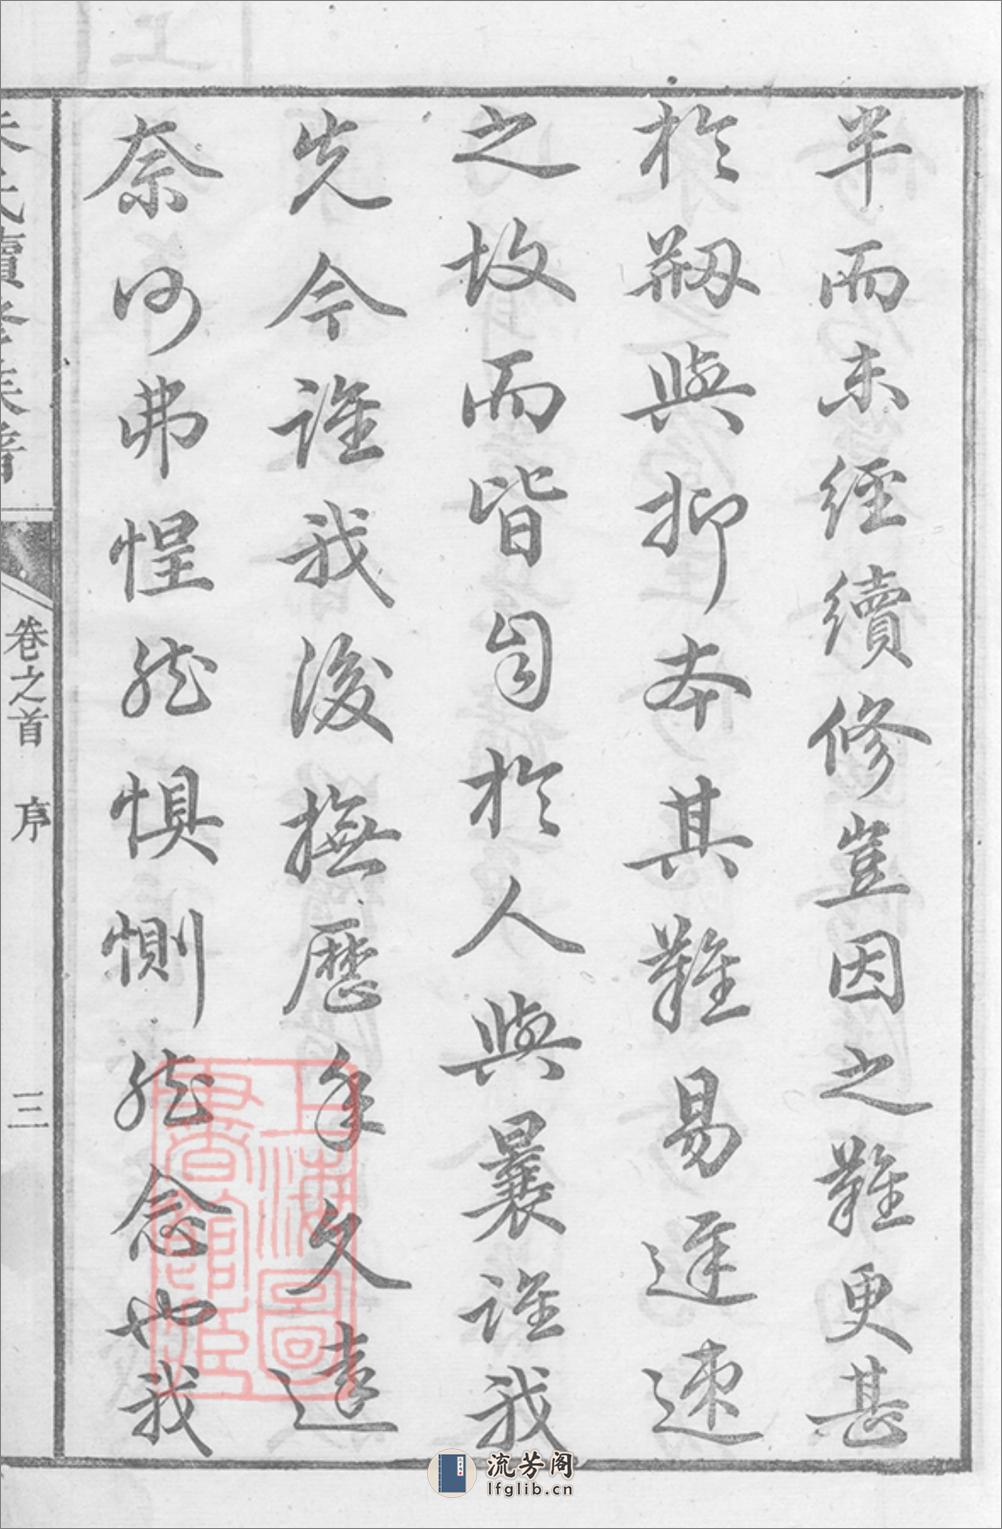 半而未經續修豈因之難更甚
於剏與抑本其難易遲速
之故而皆自於人與曩誰我
先今誰我後撫歷年久遠
奈何弗惺然惧惻然念也我
氏續修族譜
卷之首 序
三
上海圖書館藏
流芳阁
lfglib.cn